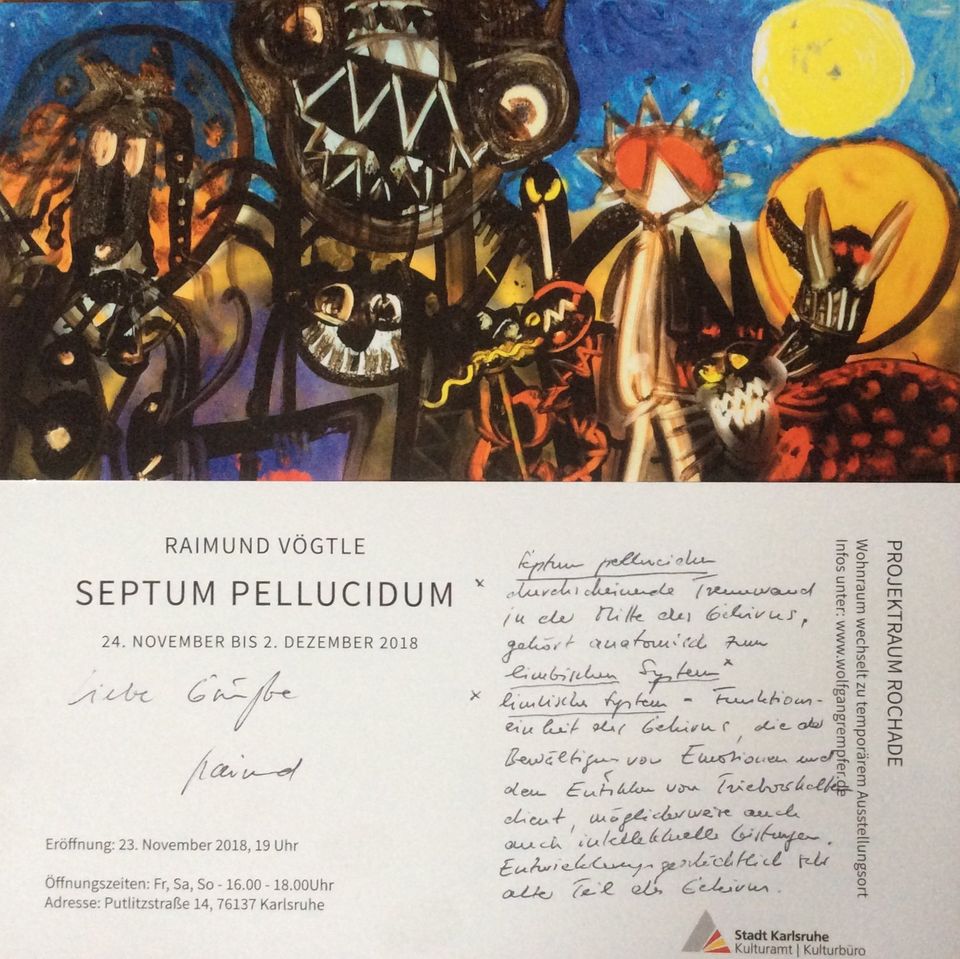 RAIMUND VÖGTLE
SEPTUM PELLUCIDUM
24. NOVEMBER BIS 2. DEZEMBER 2018
Liebe Grüße
Raimund
Eröffnung: 23. November 2018, 19 Uhr
Öffnungszeiten: Fr, Sa, So - 16.00 - 18.00Uhr
Adresse: Putlitzstraße 14, 76137 Karlsruhe
x Septum pellucidum
durchscheinende Trennwand
in der Mitte des Gehirns,
gehört anatomisch zum
limbischen System x
x limbische System = Funktions-
einheit des Gehirns, die der
Bewältigung von Emotionen und
dem Entstehen von Triebverhalten
dient, möglicherweise auch
auch intellektuelle Leistungen.
Entwicklungsgeschichtlich sehr
alter Teil des Gehirns.
PROJEKTRAUM ROCHADE
Wohnraum wechselt zu temporärem Ausstellungsort
Infos unter: www.wolfgangrempfer.de
Stadt Karlsruhe
Kulturamt | Kulturbüro